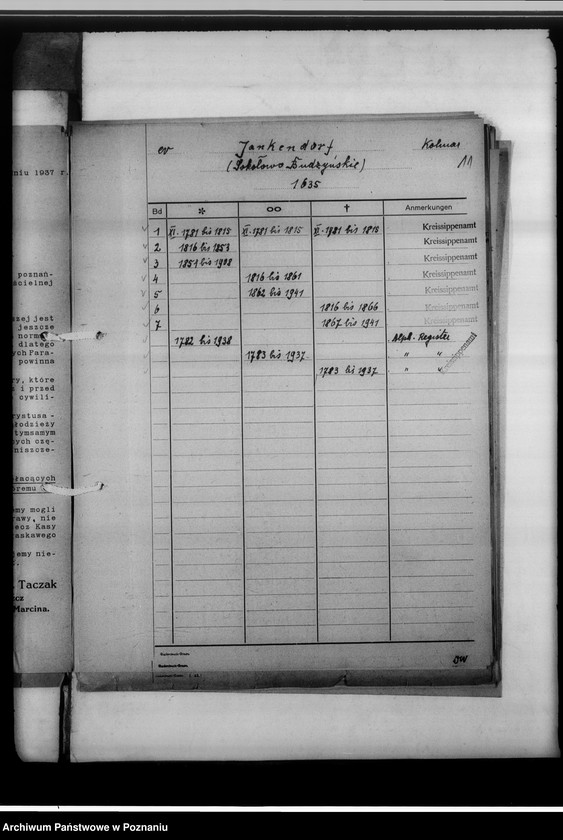 niu 1937 r.
poznań-
ścielnej
zej jest
jeszcze
norme
dlatego
ych Para-
powinna
ry, które
i przed
cywili-
rystusa -
łodzieży
tymsamym
ych czę-
niszcze-
łacących
oremu
emy mogli
rawy, nie
lecz Kasy
askawego
amy nie-
Taczak
cz
Marcina.
ev Jankendorf Kolmar
(Sokołowo Budzyńskie) 11
1635
Bd * ∞ † Anmerkungen
1 XI. 1781 bis 1815 XI. 1781 bis 1815 XI. 1781 bis 1815 Kreissippenamt
2 1816 bis 1853 Kreissippenamt
3 1854 bis 1928 Kreissippenamt
4 1816 bis 1861 Kreissippenamt
5 1862 bis 1941 Kreissippenamt
6 1816 bis 1866 Kreissippenamt
7 1867 bis 1941 Kreissippenamt
1782 bis 1938 Alph. Register
1783 bis 1937 " "
1783 bis 1937 " " Kreissippenamt
DW
Archiwum Państwowe w Poznaniu